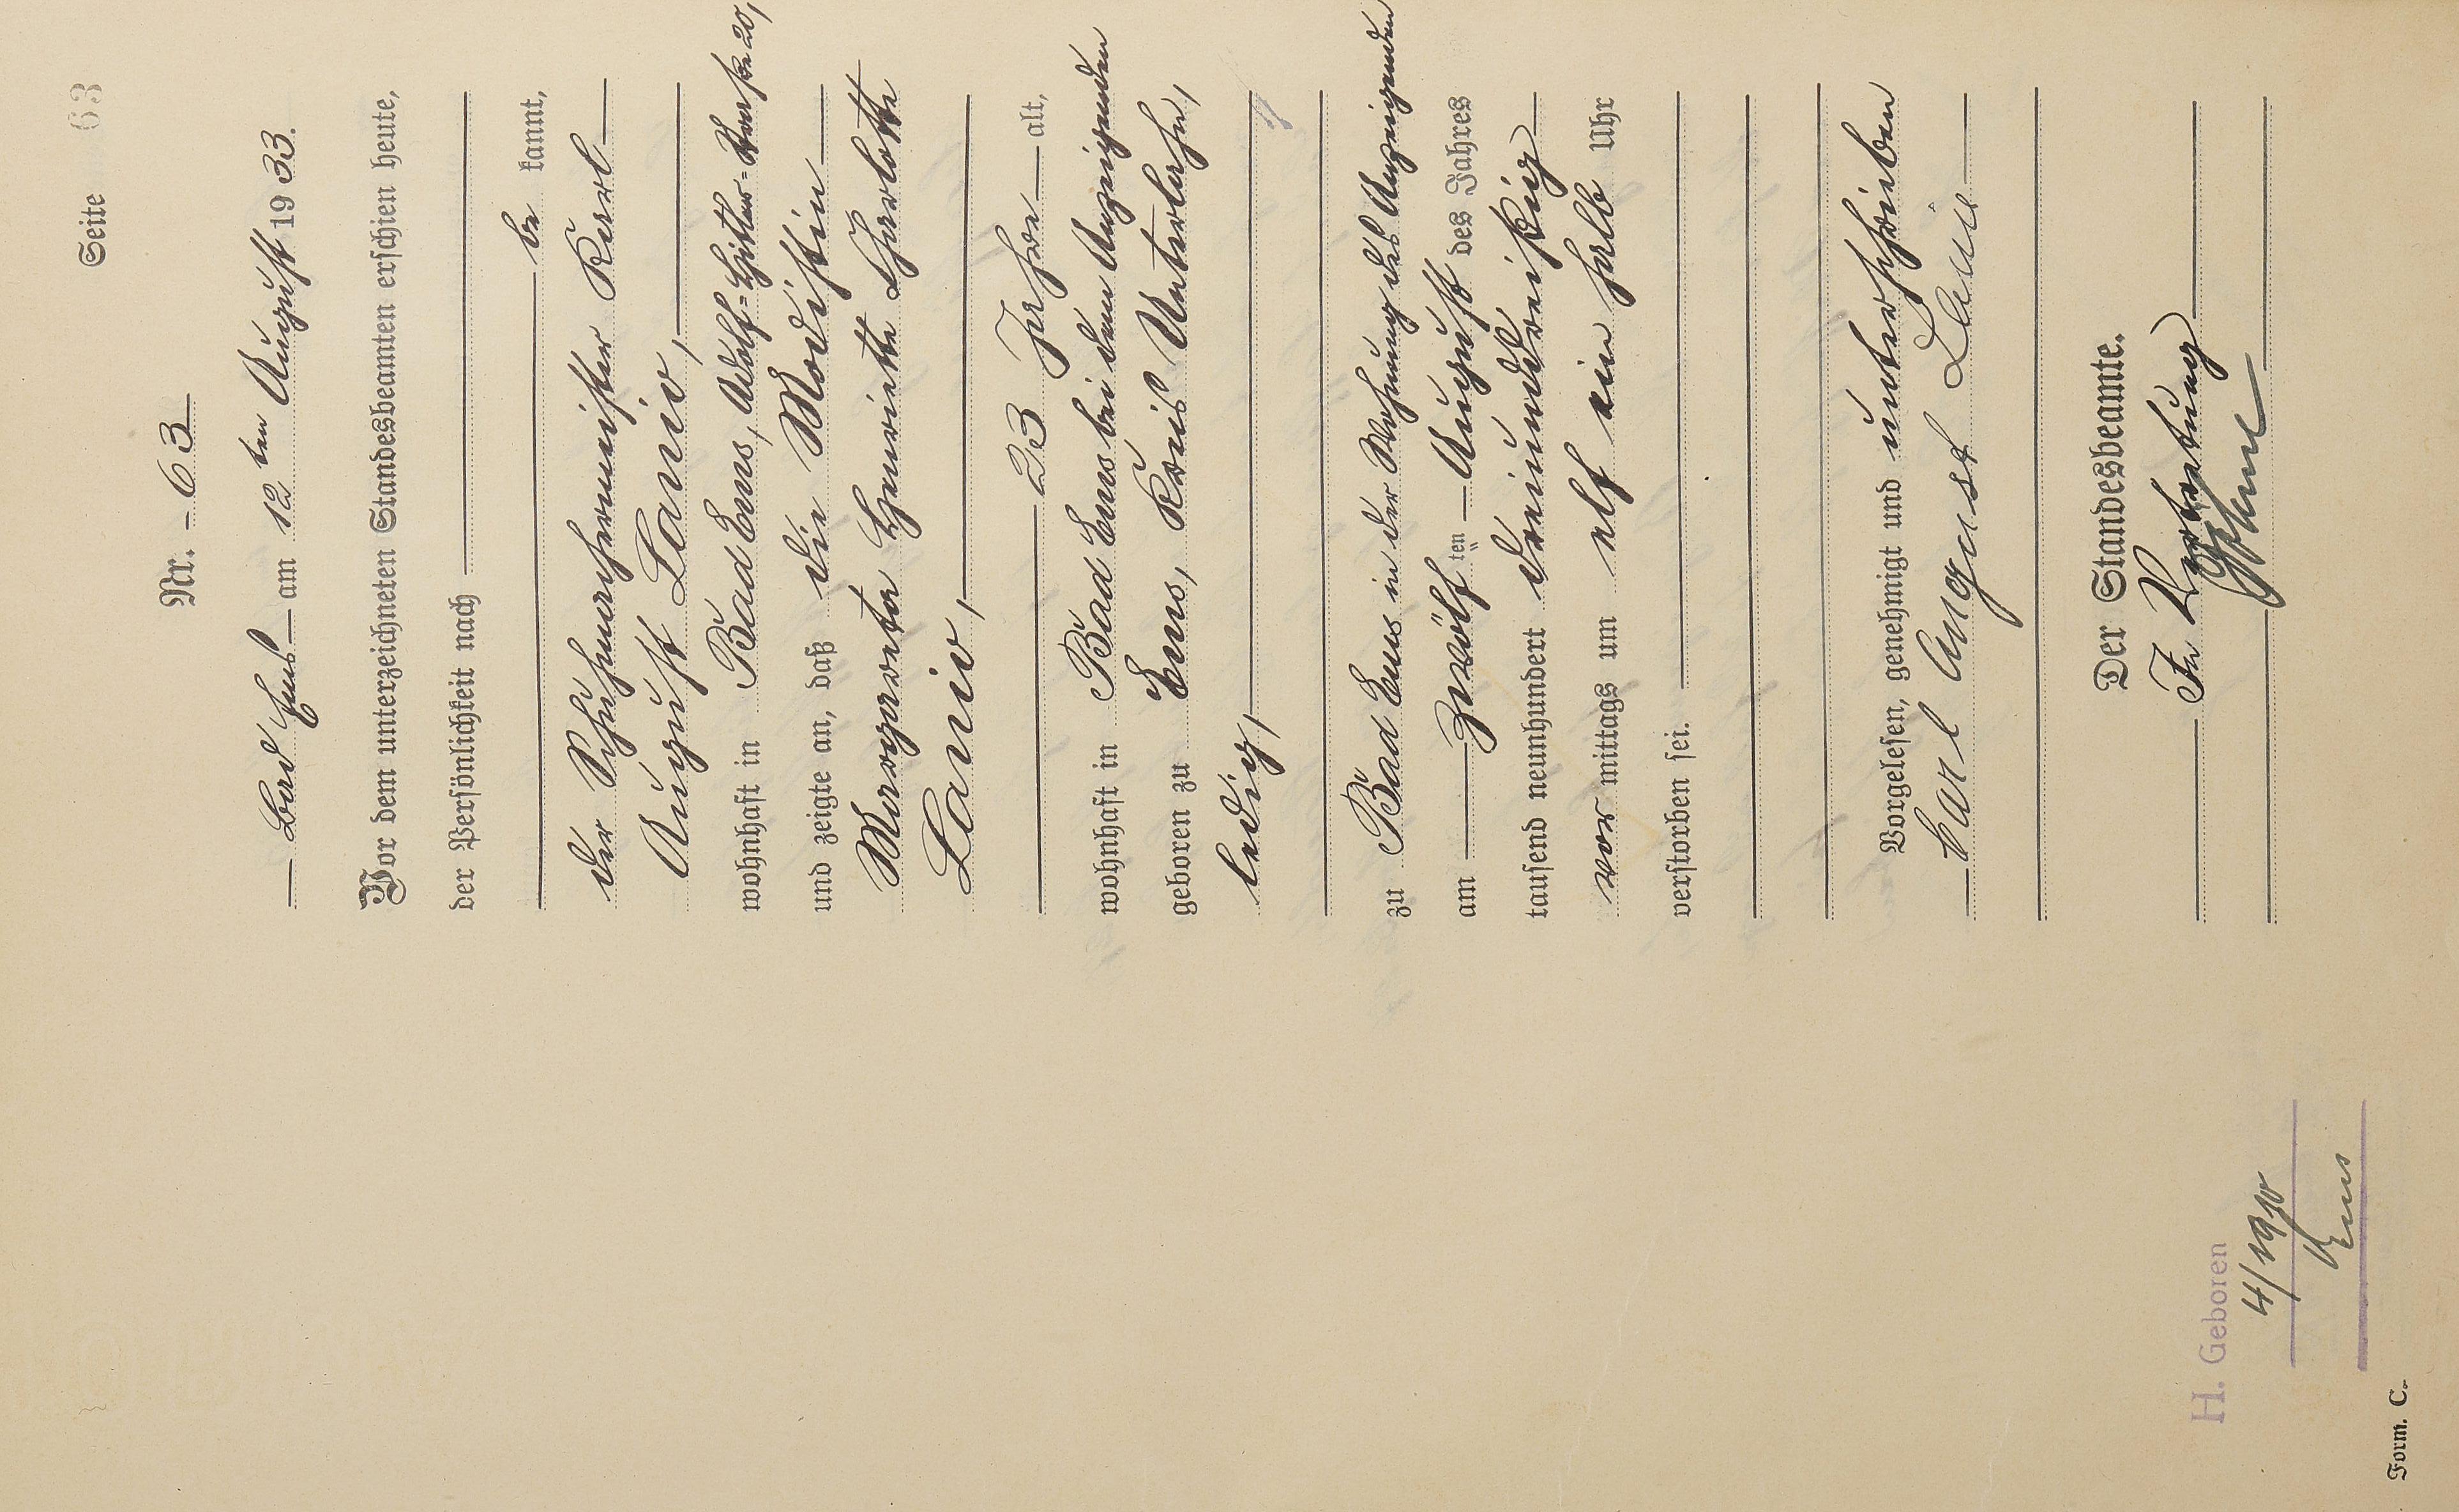 Seite 63
Nr. - 63
Bad Ems am 12 ten August 1933.
Vor dem unterzeichneten Standesbeamten erschien heute,
der Persönlichkeit nach
be kannt,
der Schuhmachermeister Karl
August Lanio,
wohnhaft in Bad Ems, Adolf=Hitler=Straße 20,
und zeigte an, daß die Modistin
Margareta Henriette Charlotte
Lanio,
23 Jahre alt,
wohnhaft in Bad Ems bei dem Anzeigenden
geboren zu Ems, Kreis Unterlahn,
ledig,
zu Bad Ems in der Wohnung des Anzeigenden
am zwölf ten August des Jahres
tausend neunhundert dreiunddreißig
vor mittags um elf ein halb Uhr
verstorben sei.
Vorgelesen, genehmigt und unterschrieben
Karl August Lanio
Der Standesbeamte.
In Vertretung
H. Geboren
4/1910
Ems
Form. C.